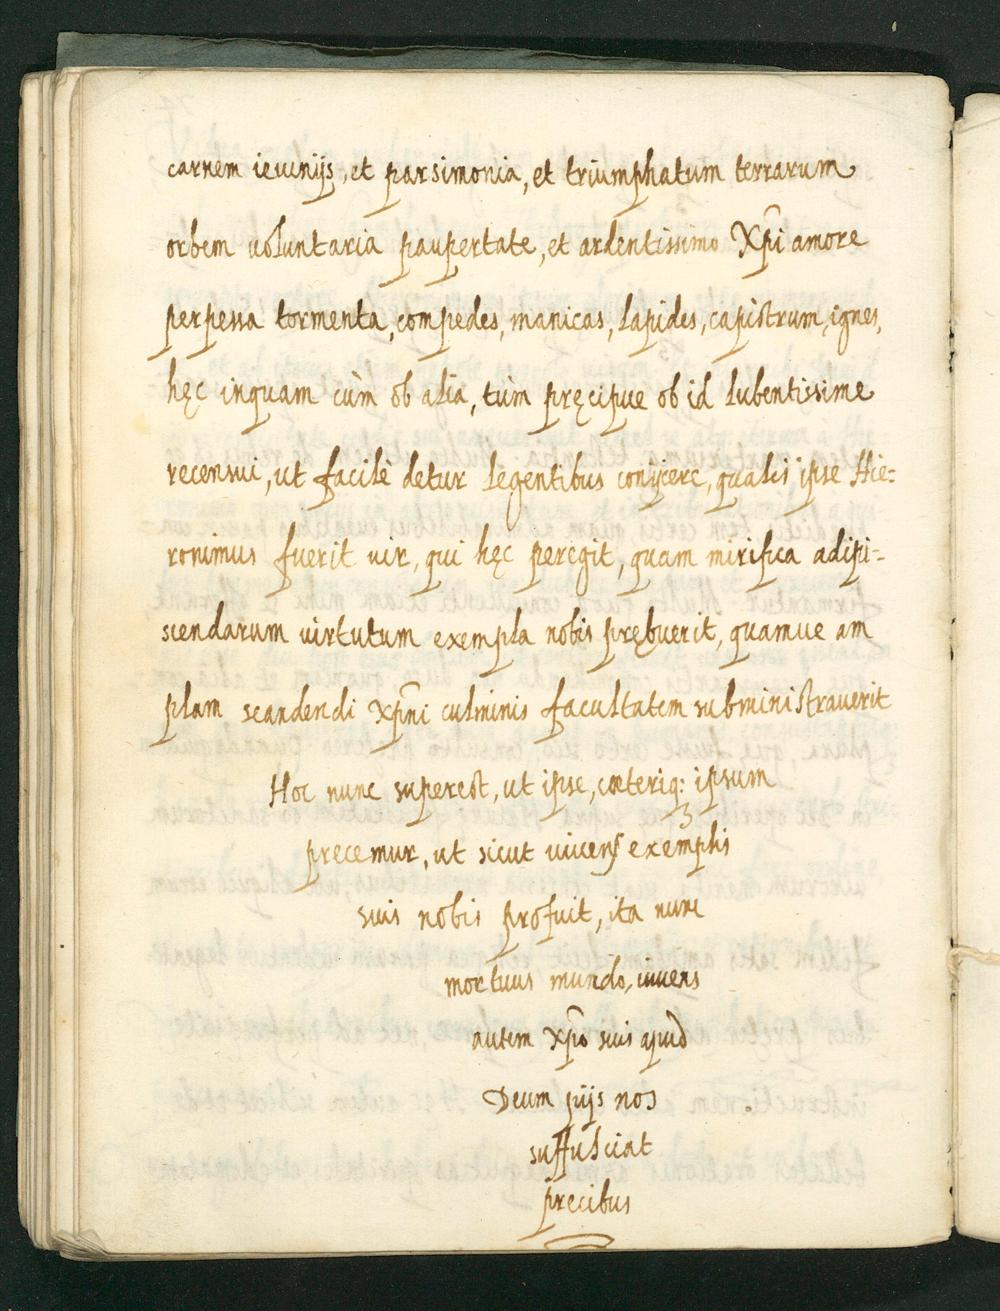 carnem ieiunijs, et parsimonia, et triumphatum terrarum
orbem uoluntaria paupertate, et ardentissimo Xp̄i amore
perpessa tormenta, compedes, manicas, lapides, capistrum, ignes,
hęc inquam cùm ob alia, tùm pręcipue ob id lubentissime
recensui, ut facilè detur legentibus conijcere, qualis ipse Hie=
ronimus fuerit uir, qui hęc peregit, quam mirifica adipi=
scendarum uirtutum exempla nobis prębuerit, quamue am
plam scandendi xp̄ni culminis facultatem subministrauerit
Hoc nunc superest, ut ipse, cæteriq: ipsum
precemur, ut sicut uiuens exemplis
suis nobis profuit, ita nunc
mortuus mundo, uiuens
autem xp̄o suis apud
Deum pijs nos
suffulciat
precibus